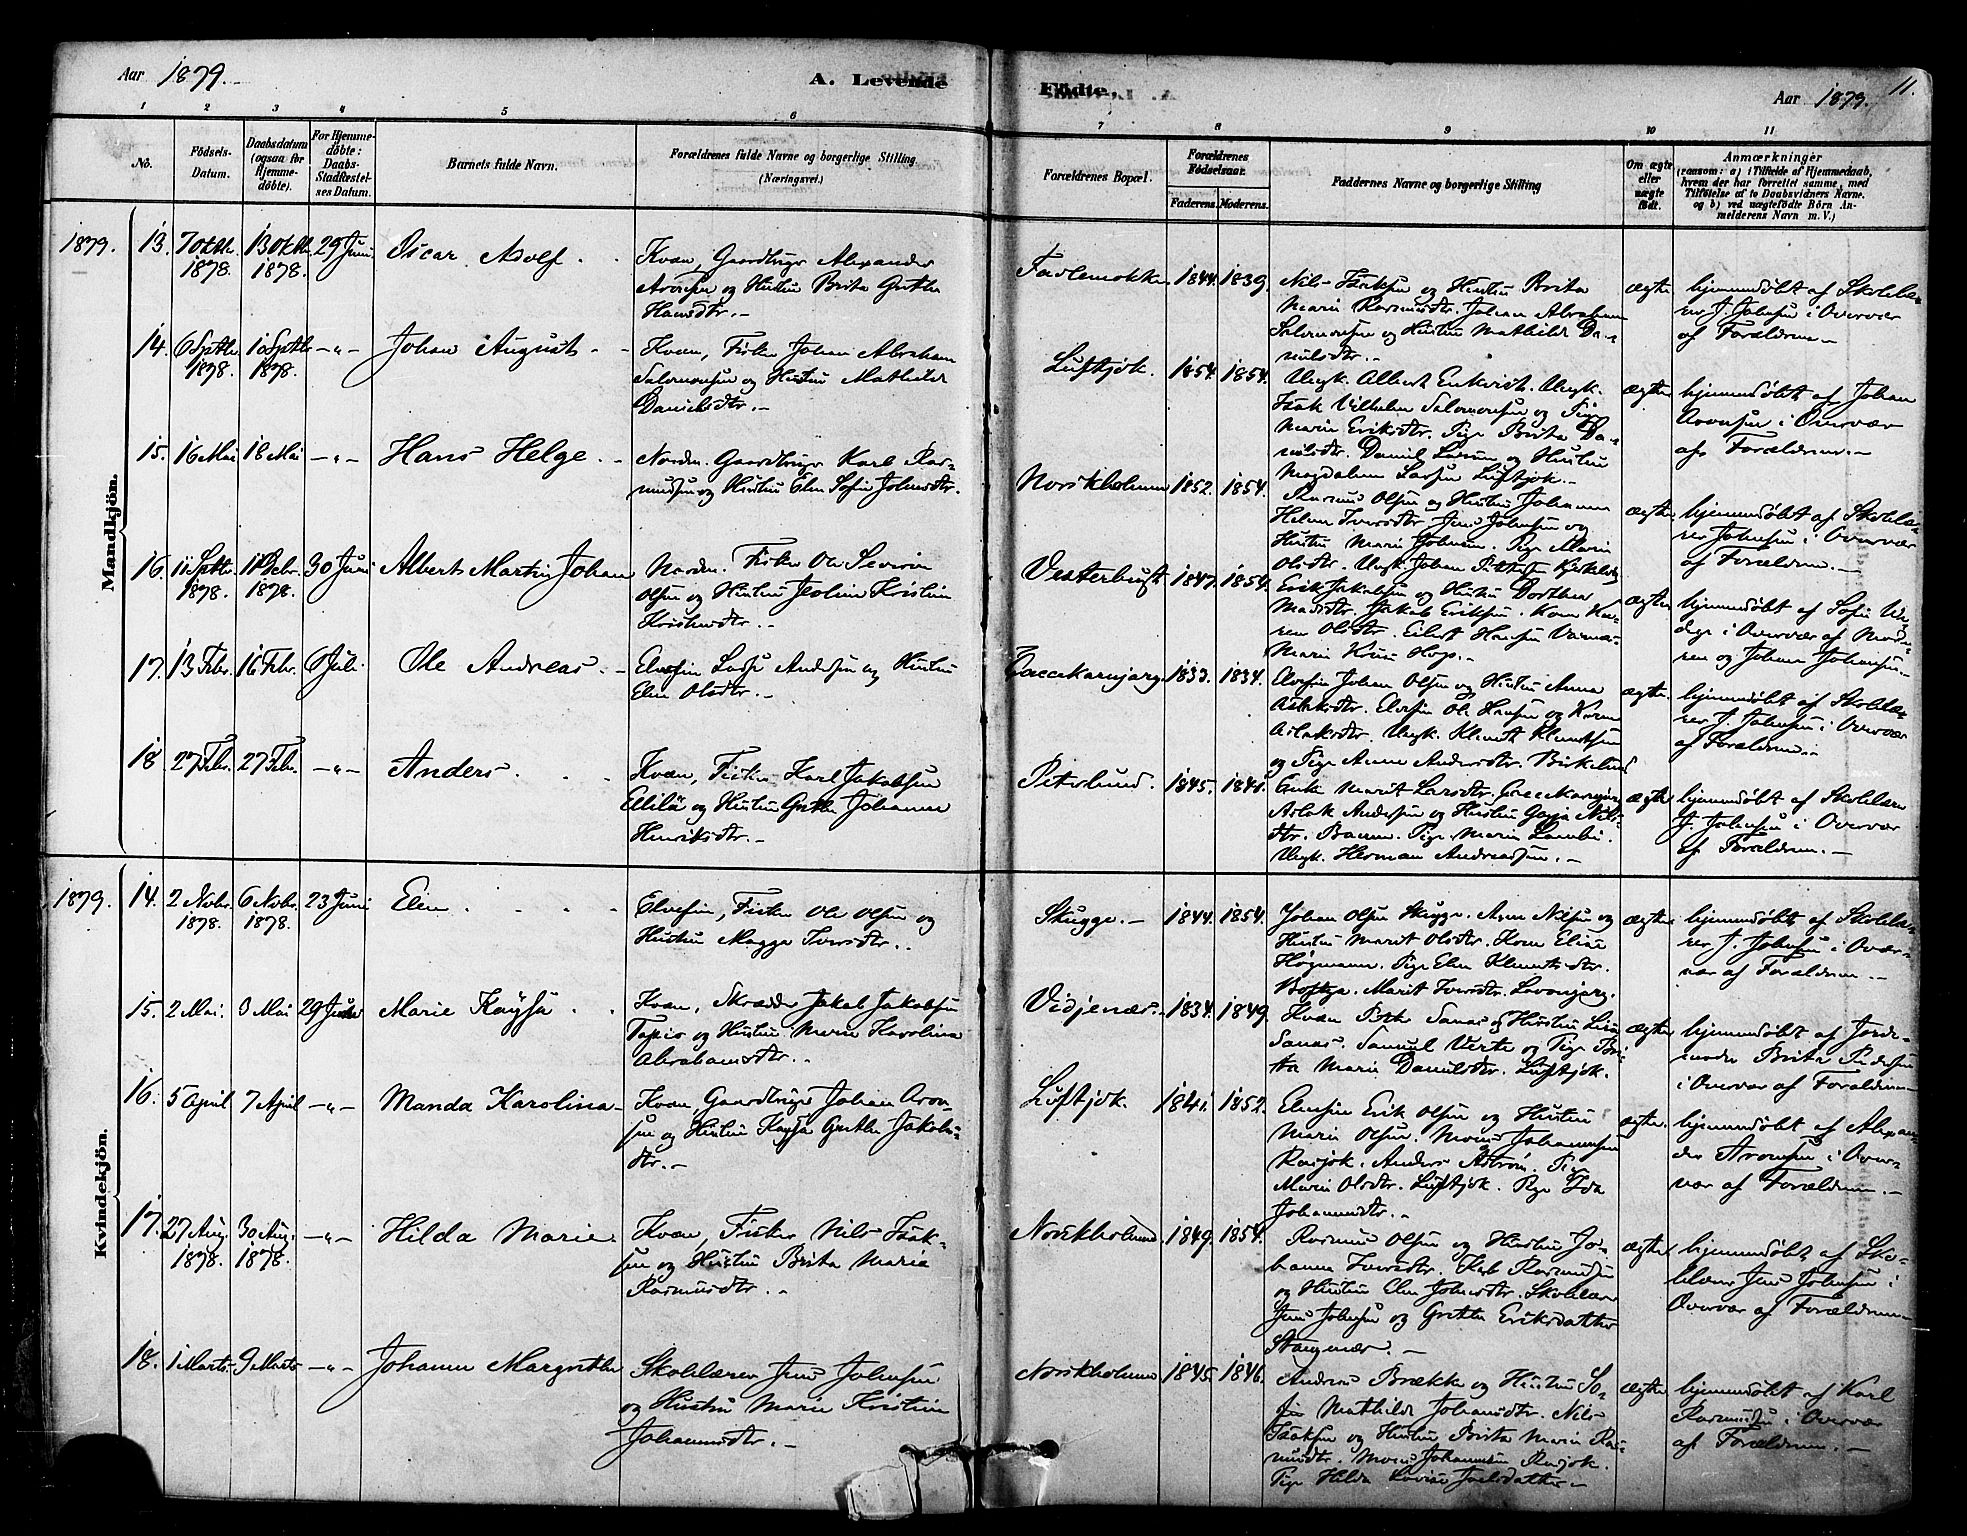 Aar 1879.
A. Levende
Födte,
Aar 1879.
11.
1 2 3 4 5 6 7 8 9 10 11
No.
Födsels-
Datum.
Daabsdatum
(ogsaa for
Hjemme-
döbte).
For Hjemme-
döbte:
Daabs-
Stadfæstel-
ses Datum.
Barnets fulde Navn.
Forældrenes fulde Navne og borgerlige Stilling
(Næringsvei.)
Forældrenes Bopæl.
Forældrenes
Födselsaar.
Faderens. Moderens.
Faddernes Navne og borgerlige Stilling
Om ægte
eller
uægte
födt.
Anmærkninger
(saasom: a) i Tilfælde af Hjemmedaab,
hvem der har forrettet samme, med
Tilföielse af to Daabsvidners Navne.
og b) ved uægtefödte Börn An-
melderens Navn m. V.)
Mandkjön.
1879. 13. 7 Oktbr. 1878. 13 Oktbr. 1878. 29 Juni Oscar Adolf
Kvæn, Gaardbruger Alexander
Aronsen og Hustru Brita Grethe
Hansdtr.
1844. 1839.
Nils Isaksen og Hustru Brita
Marie Rasmusdtr. Johan Abraham
Salomonsen og Hustru Mathilde Da-
nielsdtr.
ægte
hjemmedøbt af Skolelæ-
rer J. Johnsen i Overvær
af Forældrene
14. 6 Septbr. 1878. 1878. -"- Johan August
Kvæn, Fisker Johan Abraham
Salomonsen og Hustru Mathilde
Danielsdtr.
Luftjok. 1854. 1854.
Ungk. Albert Enkvist. Ungk.
Isak Vilhelm Salomonsen og Pige
Marie Eriksdtr. Pige Brita Da-
nielsdtr. Daniel Larsen og Hustru
Magdalene Larsen Luftjok.
ægte
hjemmedøbt af Johan
Aronsen i Overvær
af Forældrene.
15. 16 Mai 18 Mai -"- Hans Helge
Nordm. Gaardbruger Karl Ras-
mussen og Hustru Elen Sofie Johnsdtr.
Norskholmen 1852. 1854.
Rasmus Olsen og Hustru Johanne
Helene Iversdtr. Jens Johnsen og
Hustru Marie Johnsen. Pige Marie
Olsdtr. Ungk. Johan
ægte
hjemmedøbt af Skolelæ-
rer Johnsen i Overvær
af Forældrene.
16. 11 Septbr. 1878. 1878. 30 Juni Albert Martin Johan
Nordm. Fisker Ole Severin
Olsen og Hustru Kristine
1847. 1854.
Erik Jakobsen og Hustru Dorthea
Madsdtr. Jakob Eriksen. Kone Ka-
ren Olsdtr. Eilert Hansen
Marie
ægte
hjemmedøbt af Sofie
i Overvær af Mode-
ren og Johan Johansen.
17. 13 Febr. 16 Febr. Juli Ole Andreas
Elvefin Lars Andersen og Hustru
Elen Olsdtr.
1833. 1834.
Elvefin Johan Olsen og Hustru Anna
Aslaksdtr. Elvefin Ole Hansen og Karen
Aslaksdtr. Ungk. Klemet Klemetsen
og Pige Anne Andersdtr. Birkelund
ægte
hjemmedøbt af Skolelæ-
rer J. Johnsen i Overvær
af Forældrene.
18 27 Febr. 27 Febr. -"- Anders
Kvæn, Fisker Karl Jakobsen
og Hustru Grethe Johanne
Henriksdtr.
Peterlund. 1845.
Enke Marit Larsdtr.
Aslak Andersen og Hustru Nils-
dtr. Pige Marie
Ungk. Herman Andreassen.
ægte
hjemmedøbt af Skolelærer
J. Johnsen i Overvær
af Forældrene.
Kvindekjön.
1879. 14. 2 Novbr. 1878. 6 Novbr. 1878. 23 Juni Elen
Elvefin, Fisker Ole Olsen og
Hustru Magga Iversdtr.
Skugge. 1844. 1854.
Johan Olsen Skugge. Aron Nilsen og
Hustru Marit Olsdtr. Kone Elise
Høgmann. Pige Elen Klemetsdtr.
Marit Iversdtr.
ægte
hjemmedøbt af Skolelæ-
rer J. Johnsen i Over-
vær af Forældrene
15. 2 Mai. Mai 29 Juni Marie Kaysa
Kvæn, Skrædder Jakob Jakobsen
Tapio og Hustru Marie Karolina
Abrahamsdtr.
Vidjenæs. 1834. 1849.
Kvæn og Hustru
Samuel og Pige Bri-
ta Marie Danielsdtr. Luftjok.
ægte
hjemmedøbt af Jorde-
moder Brita Pedersen
i Overvær af Forældrene
16. 5 April 7 April -"- Manda Karolina
Kvæn, Gaardbruger Johan Aron-
sen og Hustru Kaysa Grethe Jakobs-
dtr.
Luftjok. 1841. 1852.
Elvefin Erik Olsen og Hustru
Marie Olsen. Johannesen
Anders
Marie Olsdtr. Luftjok. Pige Ida
Johannesdtr.
ægte
hjemmedøbt af Alexan-
der Aronsen i Over-
vær af Forældrene.
17. 27 Aug. 1878. 30 Aug. 1878. -"- Hilda Marie
Kvæn, Fisker Nils Isak-
sen og Hustru Brita Marie
Rasmusdtr.
Norskholmen 1849. 1854.
Rasmus Olsen og Hustru Jo-
hanna Iversdtr. Karl Rasmussen
og Hustru Elen Johnsdtr. Skolelærer
Jens Johnsen og Grethe Eriksdatter
Stangenæs.
ægte
hjemmedøbt af Sko-
lelærer Jens Johnsen i
Overvær af Forældrene
18. 1 Marts 9 Marts -"- Johanne Margrethe
Skolelærer Jens Johnsen
og Hustru Marie Kristine
Johannesdtr.
Norskholmen 1845. 1846.
Andreas Brække og Hustru So-
fie Mathilde Johansdtr. Nils
Isaksen og Hustru Brita Marie Ras-
musdtr. Johannesen
Pige Hilda Lovise Joelsdatter
ægte
hjemmedøbt af Karl
Rasmussen i Overvær
af Forældrene.